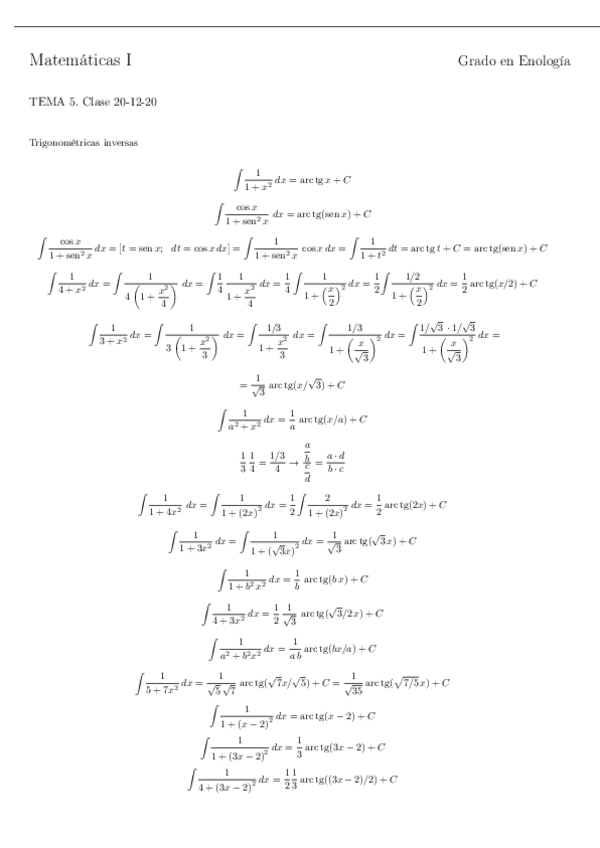 Matemáticas I Grado en Enología
TEMA 5. Clase 20-12-20
Trigonométricas inversas
∫ 1/(1 + x²) dx = arc tg x + C
∫ cos x/(1 + sen² x) dx = arc tg(sen x) + C
∫ cos x/(1 + sen² x) dx = [t = sen x; dt = cos x dx] = ∫ 1/(1 + sen² x) cos x dx = ∫ 1/(1 + t²) dt = arc tg t + C = arc tg(sen x) + C
∫ 1/(4 + x²) dx = ∫ 1/(4 (1 + x²/4)) dx = ∫ 1/4 1/(1 + x²/4) dx = 1/4 ∫ 1/(1 + (x/2)²) dx = 1/2 ∫ (1/2)/(1 + (x/2)²) dx = 1/2 arc tg(x/2) + C
∫ 1/(3 + x²) dx = ∫ 1/(3 (1 + x²/3)) dx = ∫ (1/3)/(1 + x²/3) dx = ∫ (1/3)/(1 + (x/√3)²) dx = ∫ (1/√3 · 1/√3)/(1 + (x/√3)²) dx =
= 1/√3 arc tg(x/√3) + C
∫ 1/(a² + x²) dx = 1/a arc tg(x/a) + C
1/3 1/4 = (1/3)/4 → (a/b)/(c/d) = (a · d)/(b · c)
∫ 1/(1 + 4x²) dx = ∫ 1/(1 + (2x)²) dx = 1/2 ∫ 2/(1 + (2x)²) dx = 1/2 arc tg(2x) + C
∫ 1/(1 + 3x²) dx = ∫ 1/(1 + (√3x)²) dx = 1/√3 arc tg(√3x) + C
∫ 1/(1 + b² x²) dx = 1/b arc tg(b x) + C
∫ 1/(4 + 3x²) dx = 1/2 1/√3 arc tg(√3/2x) + C
∫ 1/(a² + b²x²) dx = 1/(a b) arc tg(bx/a) + C
∫ 1/(5 + 7x²) dx = 1/(√5 √7) arc tg(√7x/√5) + C = 1/√35 arc tg(√(7/5)x) + C
∫ 1/(1 + (x − 2)²) dx = arc tg(x − 2) + C
∫ 1/(1 + (3x − 2)²) dx = 1/3 arc tg(3x − 2) + C
∫ 1/(4 + (3x − 2)²) dx = 1/2 1/3 arc tg((3x − 2)/2) + C